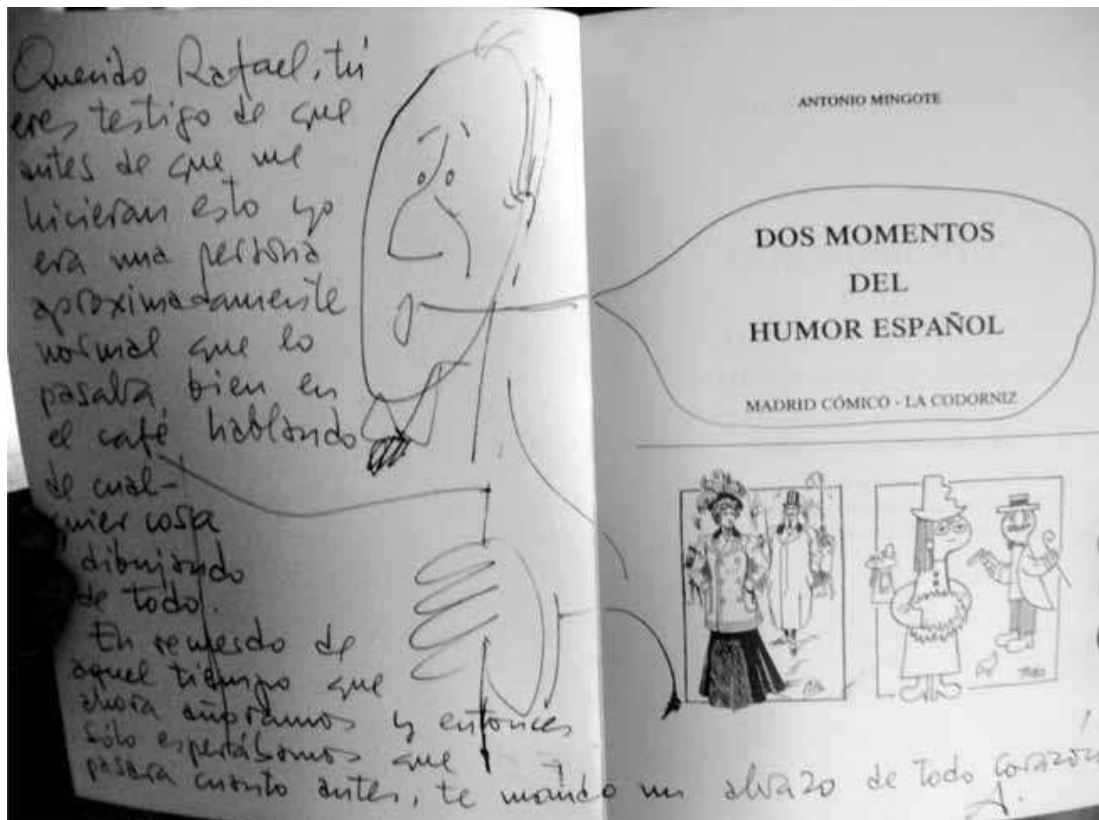 Querido Rafael, tú
eres testigo de que
antes de que me
hicieran esto yo
era una persona
aproximadamente
normal que lo
pasaba bien en
el café hablando
de cual-
quier cosa
dibujando
de todo.
En recuerdo de
aquel tiempo que
ahora añoramos y entonces
sólo esperábamos que
pasara cuanto antes, te mando un abrazo de todo corazón
ANTONIO MINGOTE
DOS MOMENTOS
DEL
HUMOR ESPAÑOL
MADRID CÓMICO - LA CODORNIZ